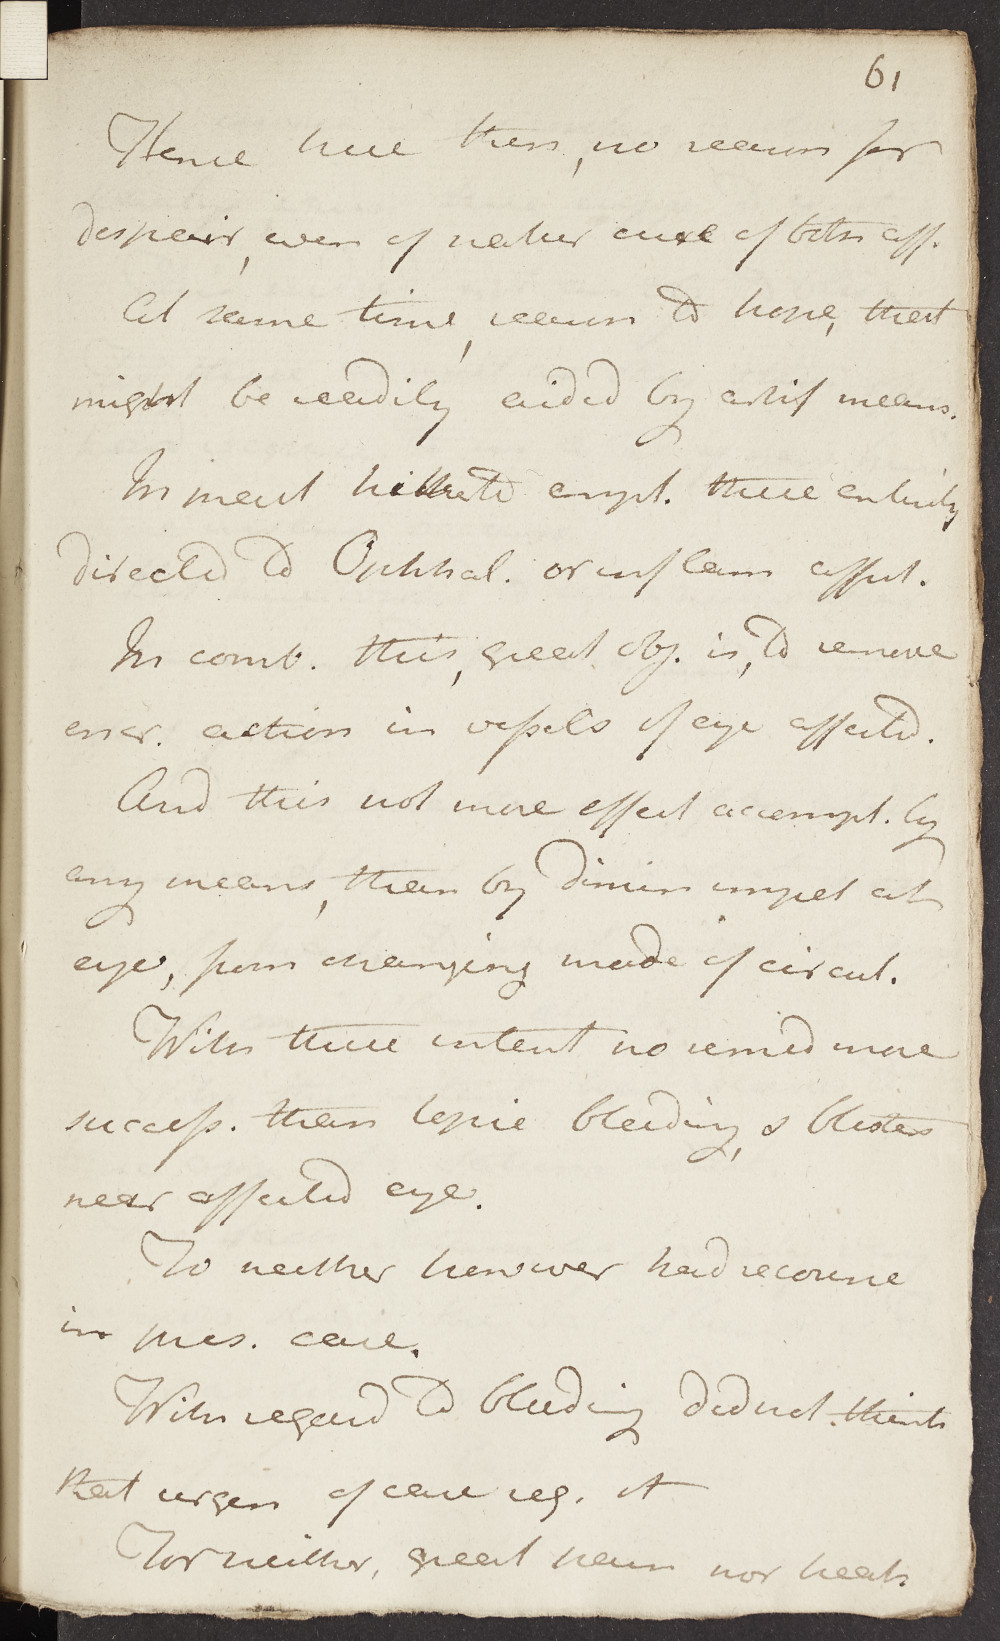 61
Hence here then, no reason for
despair, even of natur cure of both aff.
At same time, reason to hope, that
might be readily aided by artif means.
In meat hitherto empl. these entirely
directed to Ophthal. or inflam affect.
In comb. this, great obj. is, to remove
encr. action in vessels of eye affected.
And this not more effect accompl. by
any means, than by dimin impet at
eye, from changing mode of circul.
With these intent no remed more
success. than topic bleeding, & blisters
near affected eye.
To neither however had recourse
in pres. case.
With regard to bleeding did not think
that urgen of case req. it
For neither, great pain nor heat.